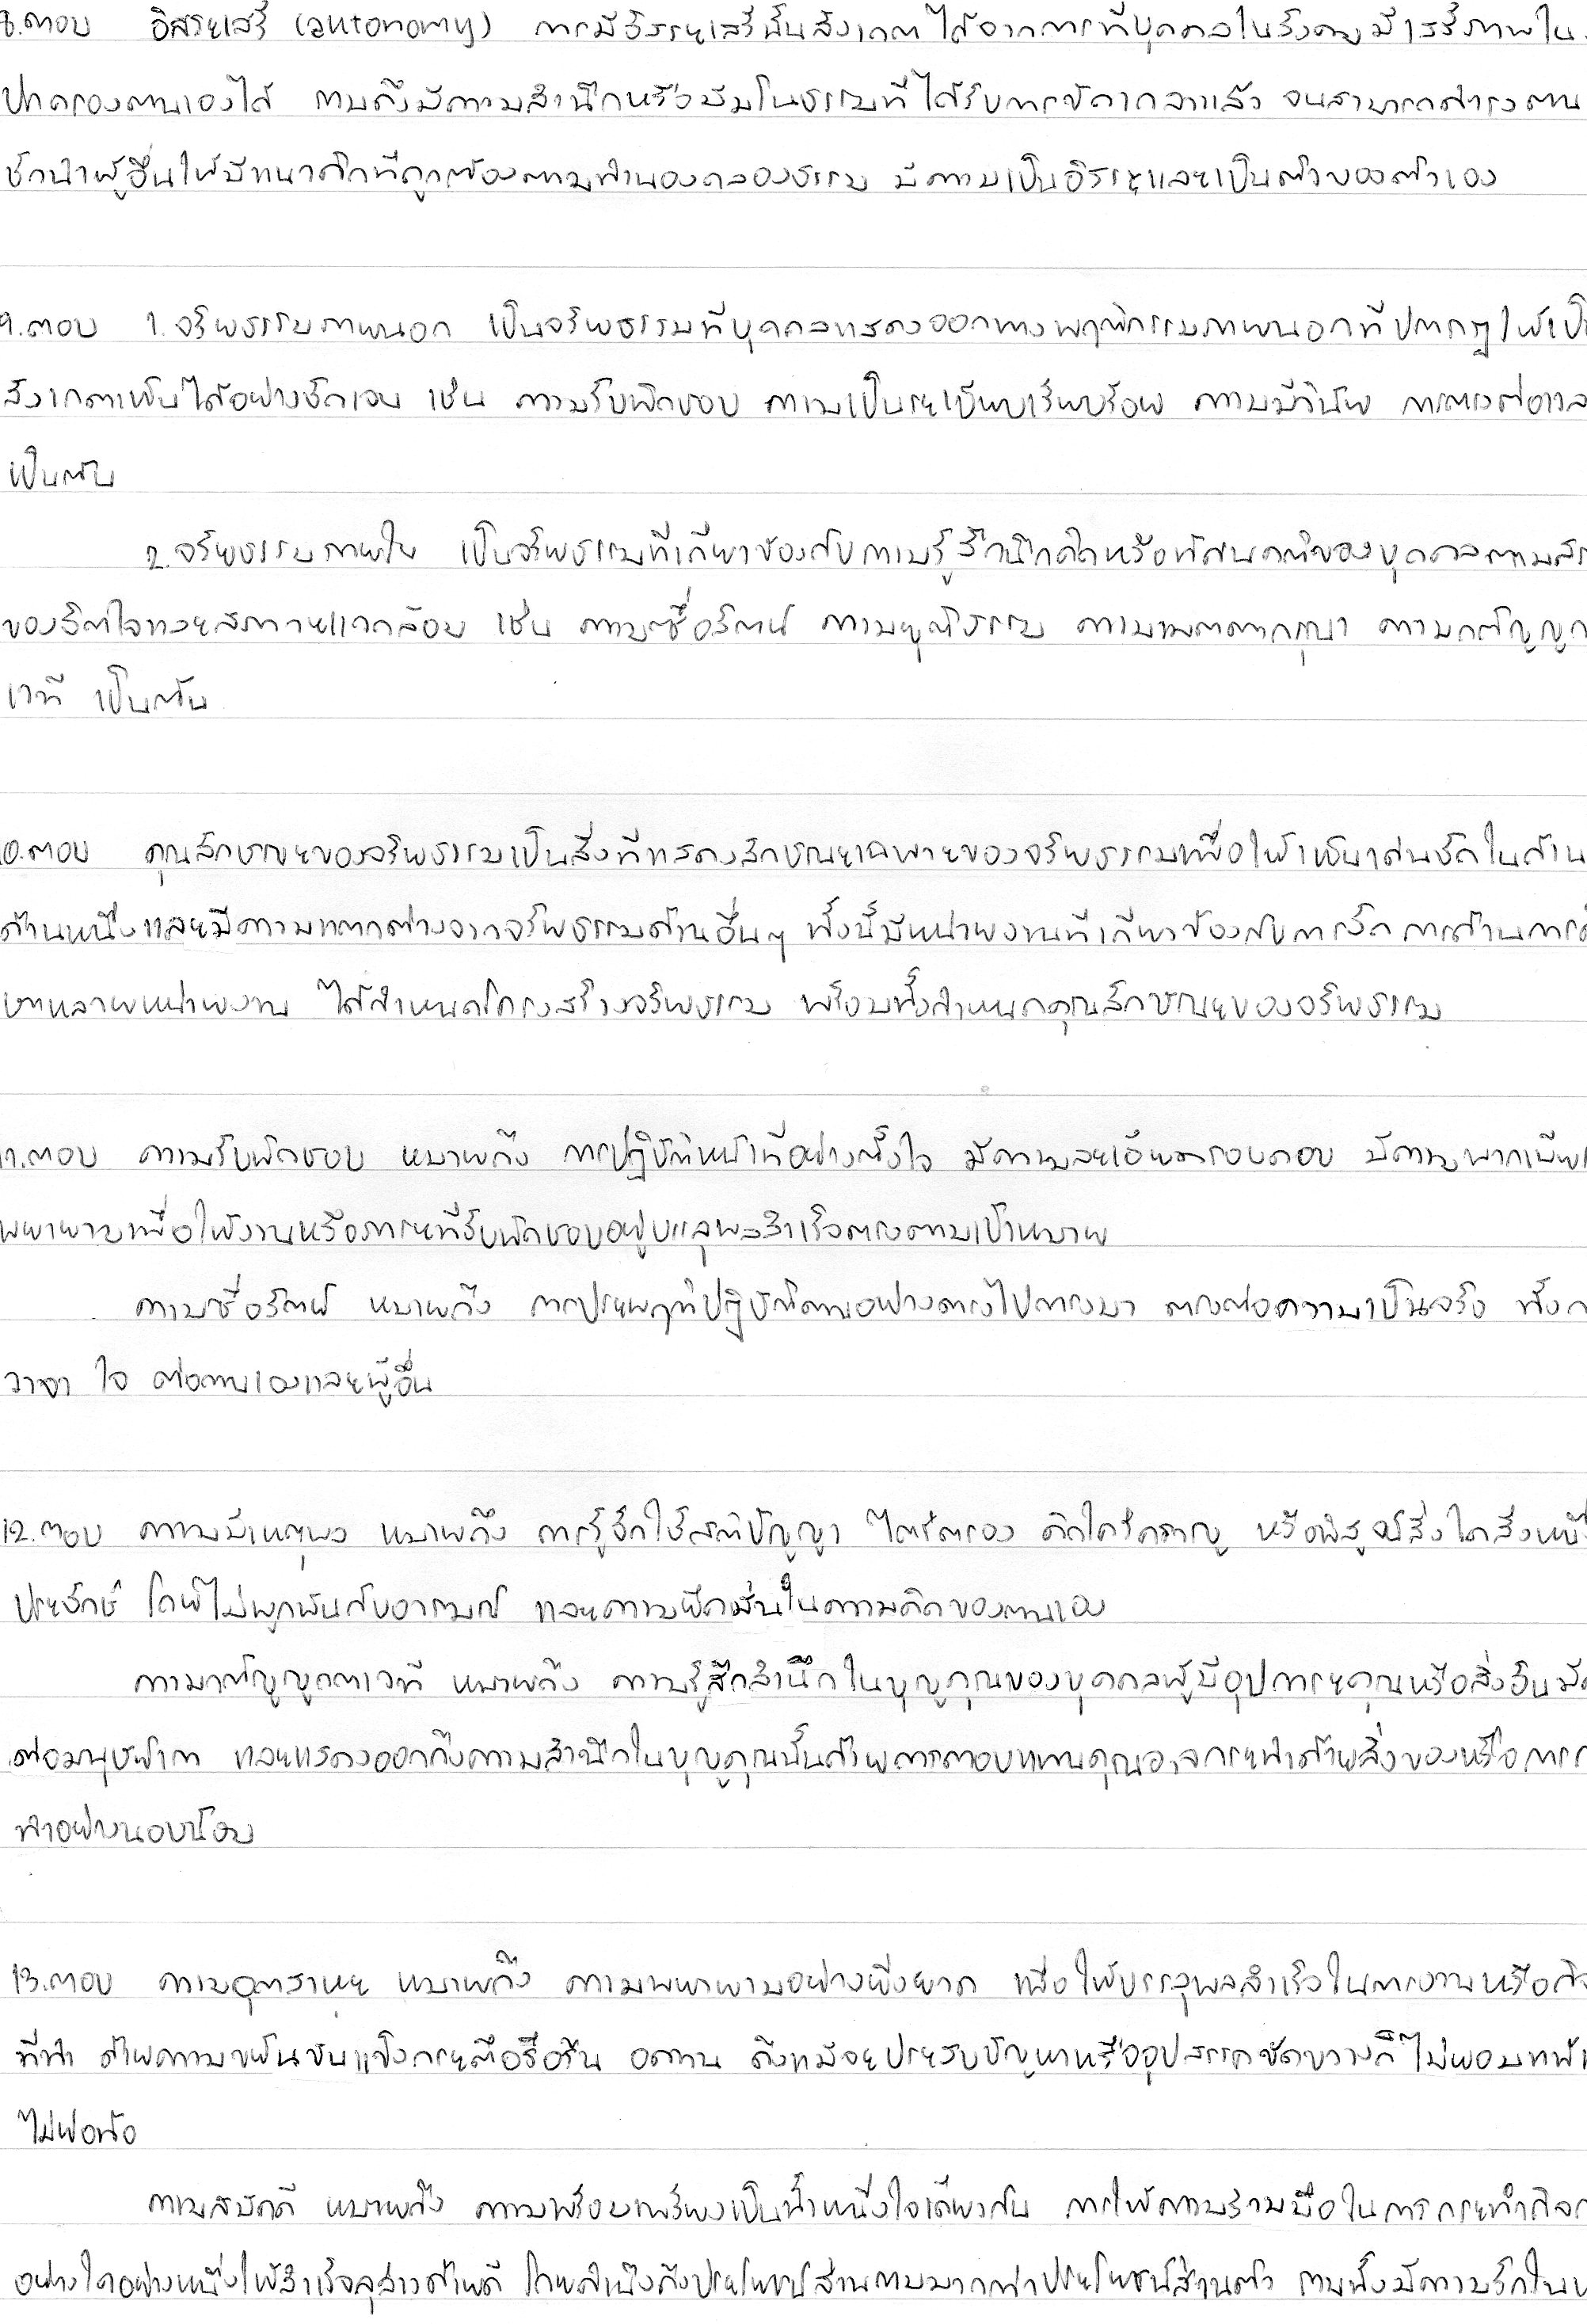 8.ตอบ อิสระเสรี (autonomy) การมีอิสระเสรีนั้นสังเกตได้จากการที่บุคคลในสังคมมีเสรีภาพใน
ปกครองตนเองได้ รวมถึงมีความสำนึกหรือมโนธรรมที่ได้รับการขัดเกลาแล้ว จนสามารถดำรงตน
ชักนำผู้อื่นให้มีแนวคิดที่ถูกต้องตามทำนองคลองธรรม มีความเป็นอิสระและเป็นตัวของตัวเอง
9.ตอบ 1.จริยธรรมภายนอก เป็นจริยธรรมที่บุคคลแสดงออกทางพฤติกรรมภายนอกที่ปรากฏให้เป็
สังเกตเห็นได้อย่างชัดเจน เช่น ความรับผิดชอบ ความเป็นระเบียบเรียบร้อย ความมีวินัย การตรงต่อเวล
เป็นต้น
2.จริยธรรมภายใน เป็นจริยธรรมที่เกี่ยวข้องกับความรู้สึกนึกคิดหรือทัศนคติของบุคคลตามส
ของจิตใจและสภาวะแวดล้อม เช่น ความซื่อสัตย์ ความยุติธรรม ความเมตตากรุณา ความกตัญญูก
เวที เป็นต้น
10.ตอบ คุณลักษณะของจริยธรรมเป็นสิ่งที่แสดงลักษณะเฉพาะของจริยธรรมเพื่อให้เห็นเด่นชัดในด้าน
ด้านหนึ่งและมีความแตกต่างจากจริยธรรมด้านอื่นๆ ทั้งนี้มีหน่วยงานที่เกี่ยวข้องกับการจัดการด้านการศ
ษาหลายหน่วยงาน ได้กำหนดโครงสร้างจริยธรรม พร้อมทั้งกำหนดคุณลักษณะของจริยธรรม
11.ตอบ ความรับผิดชอบ หมายถึง การปฏิบัติหน้าที่อย่างตั้งใจ มีความละเอียดรอบคอบ มีความพากเพียร
พยายามเพื่อให้งานหรือภาระที่รับผิดชอบอยู่บรรลุผลสำเร็จตรงตามเป้าหมาย
ความซื่อสัตย์ หมายถึง การประพฤติปฏิบัติตนอย่างตรงไปตรงมา ตรงต่อความเป็นจริง ทั้งก
วาจา ใจ ต่อตนเองและผู้อื่น
12.ตอบ ความมีเหตุผล หมายถึง การรู้จักใช้สติปัญญา ไตร่ตรอง คิดใคร่ครวญ หรือพิสูจน์สิ่งใดสิ่งหนึ่ง
ประจักษ์ โดยไม่ผูกพันกับอารมณ์ และความยึดมั่นในความคิดของตนเอง
ความกตัญญูกตเวที หมายถึง ความรู้สึกสำนึกในบุญคุณของบุคคลผู้มีอุปการะคุณหรือสิ่งอันมีค
ต่อมนุษย์เรา และแสดงออกถึงความสำนึกในบุญคุณนั้นด้วยการตอบแทนคุณอาจกระทำด้วยสิ่งของหรือการก
ทำอย่างนอบน้อม
13.ตอบ ความอุตสาหะ หมายถึง ความพยายามอย่างยิ่งยวด เพื่อให้บรรลุผลสำเร็จในการงานหรือกิจ
ที่ทำ ด้วยความขยันขันแข็งกระตือรือร้น อดทน ถึงแม้จะประสบปัญหาหรืออุปสรรคขัดขวางก็ไม่ยอมแพ้
ไม่ย่อท้อ
ความสามัคคี หมายถึง ความพร้อมเพรียงเป็นน้ำหนึ่งใจเดียวกัน การให้ความร่วมมือในการกระทำกิจก
อย่างใดอย่างหนึ่งให้สำเร็จลุล่วงด้วยดี โดยคำนึงถึงประโยชน์ส่วนรวมมากกว่าประโยชน์ส่วนตัว รวมทั้งมีความรักใน